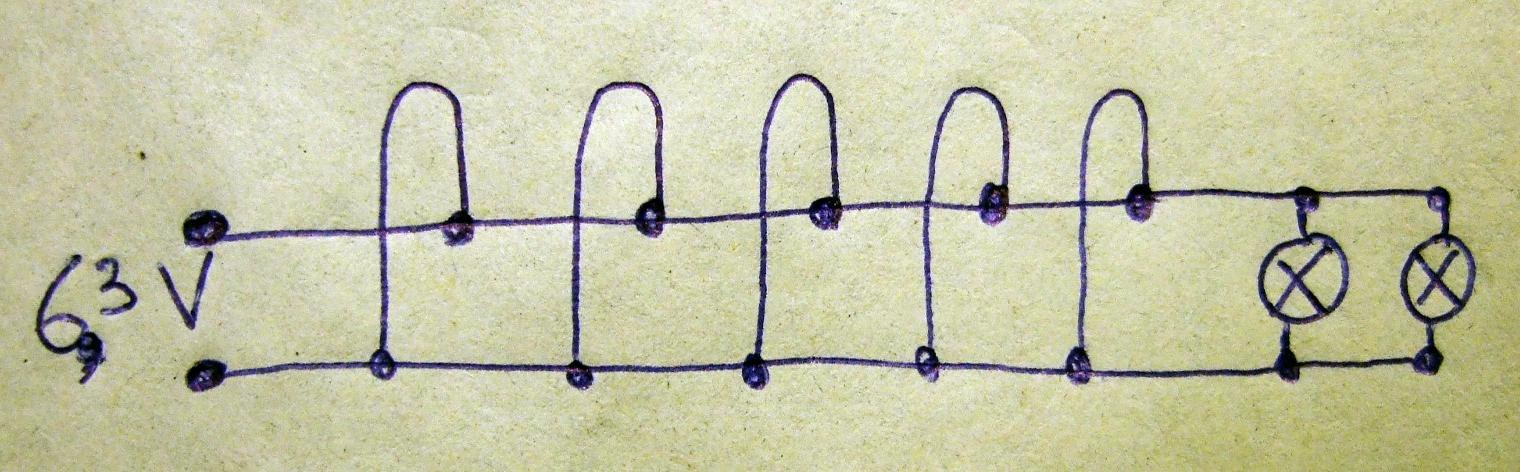 6,3 V